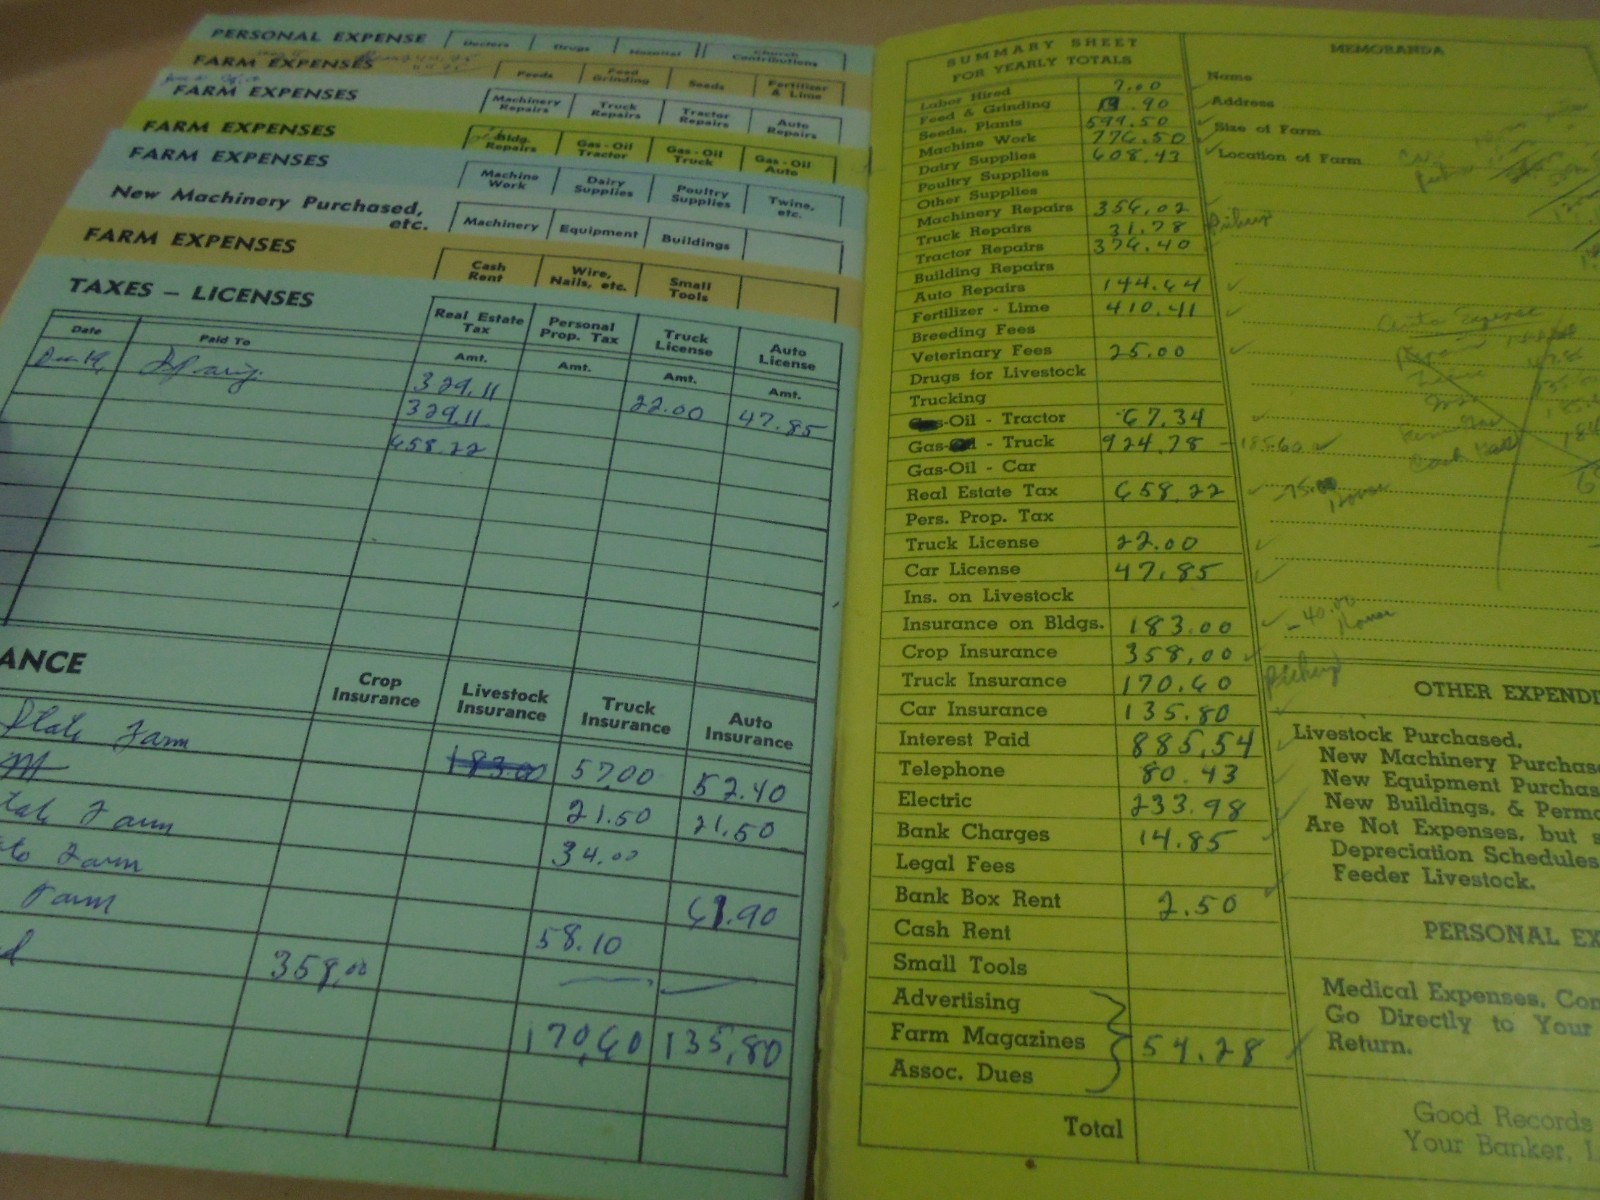 PERSONAL EXPENSE Doctors Drugs Hospital Church Contributions
FARM EXPENSES Feeds Feed Grinding Seeds Fertilizer & Lime
FARM EXPENSES Machinery Repairs Truck Repairs Tractor Repairs Auto Repairs
FARM EXPENSES Bldg. Repairs Gas - Oil Tractor Gas - Oil Truck Gas - Oil Auto
FARM EXPENSES Machine Work Dairy Supplies Poultry Supplies Twine, etc.
New Machinery Purchased, etc. Machinery Equipment Buildings
FARM EXPENSES Cash Rent Wire, Nails, etc. Small Tools
TAXES – LICENSES
Date Paid To Real Estate Tax Personal Prop. Tax Truck License Auto License
Amt. Amt. Amt. Amt.
329.11 22.00 47.85
329.11
658.22
ANCE
Crop Insurance Livestock Insurance Truck Insurance Auto Insurance
State Farm 183.00 57.00 52.40
21.50 21.50
Farm 34.00
Farm 61.90
Farm 58.10
358.00
170.60 135.80
SUMMARY SHEET
FOR YEARLY TOTALS
Labor Hired 7.00
Feed & Grinding .90
Seeds, Plants 599.50
Machine Work 776.50
Dairy Supplies 608.43
Poultry Supplies
Other Supplies
Machinery Repairs 356.02
Truck Repairs 31.78 Pickup
Tractor Repairs 376.40
Building Repairs
Auto Repairs 144.64
Fertilizer - Lime 410.41
Breeding Fees
Veterinary Fees 25.00
Drugs for Livestock
Trucking
-Oil - Tractor 67.34
Gas- - Truck 924.78 - 185.60
Gas-Oil - Car
Real Estate Tax 658.22 -75.00 House
Pers. Prop. Tax
Truck License 22.00
Car License 47.85
Ins. on Livestock
Insurance on Bldgs. 183.00 -40.00 House
Crop Insurance 358.00
Truck Insurance 170.60 Pickup
Car Insurance 135.80
Interest Paid 885.54
Telephone 80.43
Electric 233.98
Bank Charges 14.85
Legal Fees
Bank Box Rent 2.50
Cash Rent
Small Tools
Advertising
Farm Magazines 54.28
Assoc. Dues
Total
MEMORANDA
Name
Address
Size of Farm
Location of Farm
Auto Expense
OTHER EXPENDI
Livestock Purchased,
New Machinery Purchase
New Equipment Purchas
New Buildings, & Perma
Are Not Expenses, but s
Depreciation Schedules
Feeder Livestock.
PERSONAL EX
Medical Expenses, Con
Go Directly to Your
Return.
Good Records
Your Banker, L